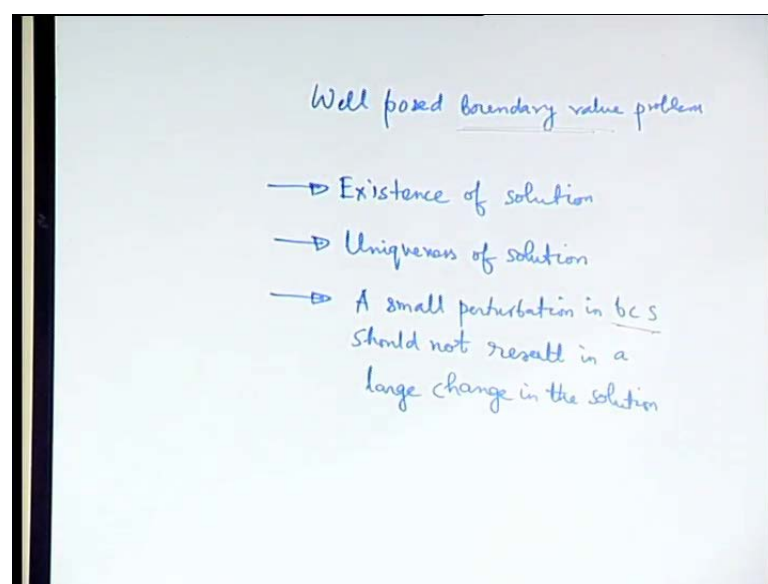 Well posed Boundary value problem
Existence of solution
Uniqueness of solution
A small perturbation in bcs
should not result in a
large change in the solution